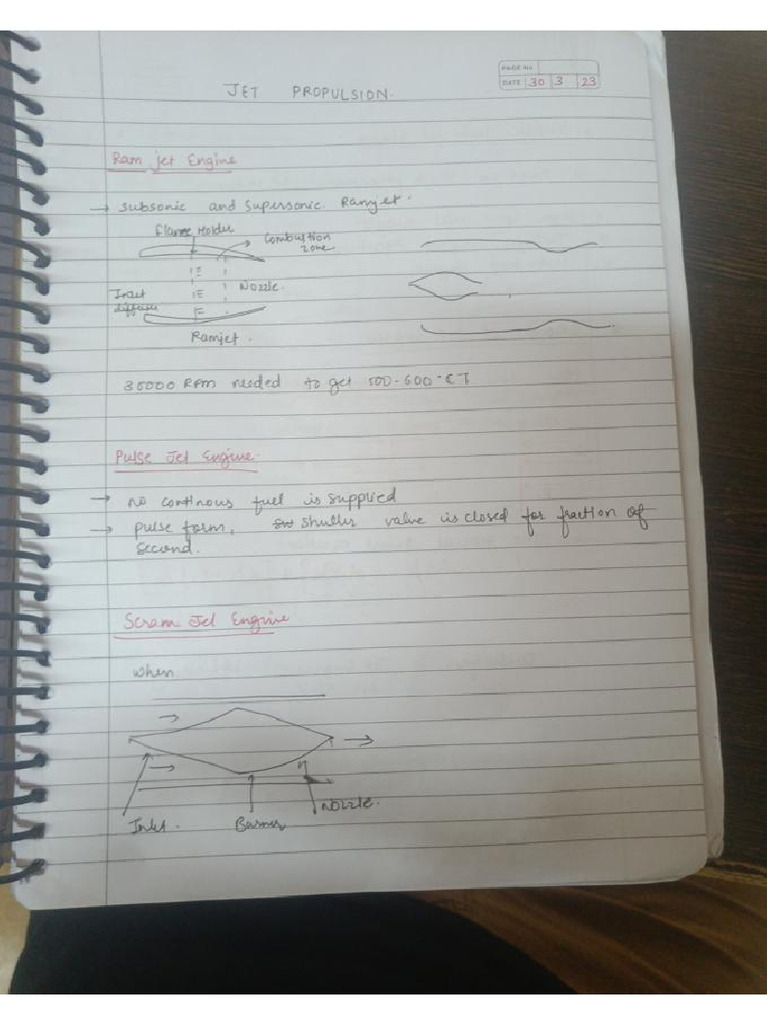 PAGE NO.
DATE 30 3 23
JET PROPULSION.
Ram jet Engine
→ subsonic and supersonic Ramjet.
Flame Holder
Combustion zone
Nozzle.
Inlet diffuser
Ramjet.
RPM needed to get 500-600
Pulse Jet Engine.
→ no continous fuel is supplied
→ pulse form, valve is closed for fraction of
second.
Scram Jet Engine
when
Nozzle.
Inlet. Burner